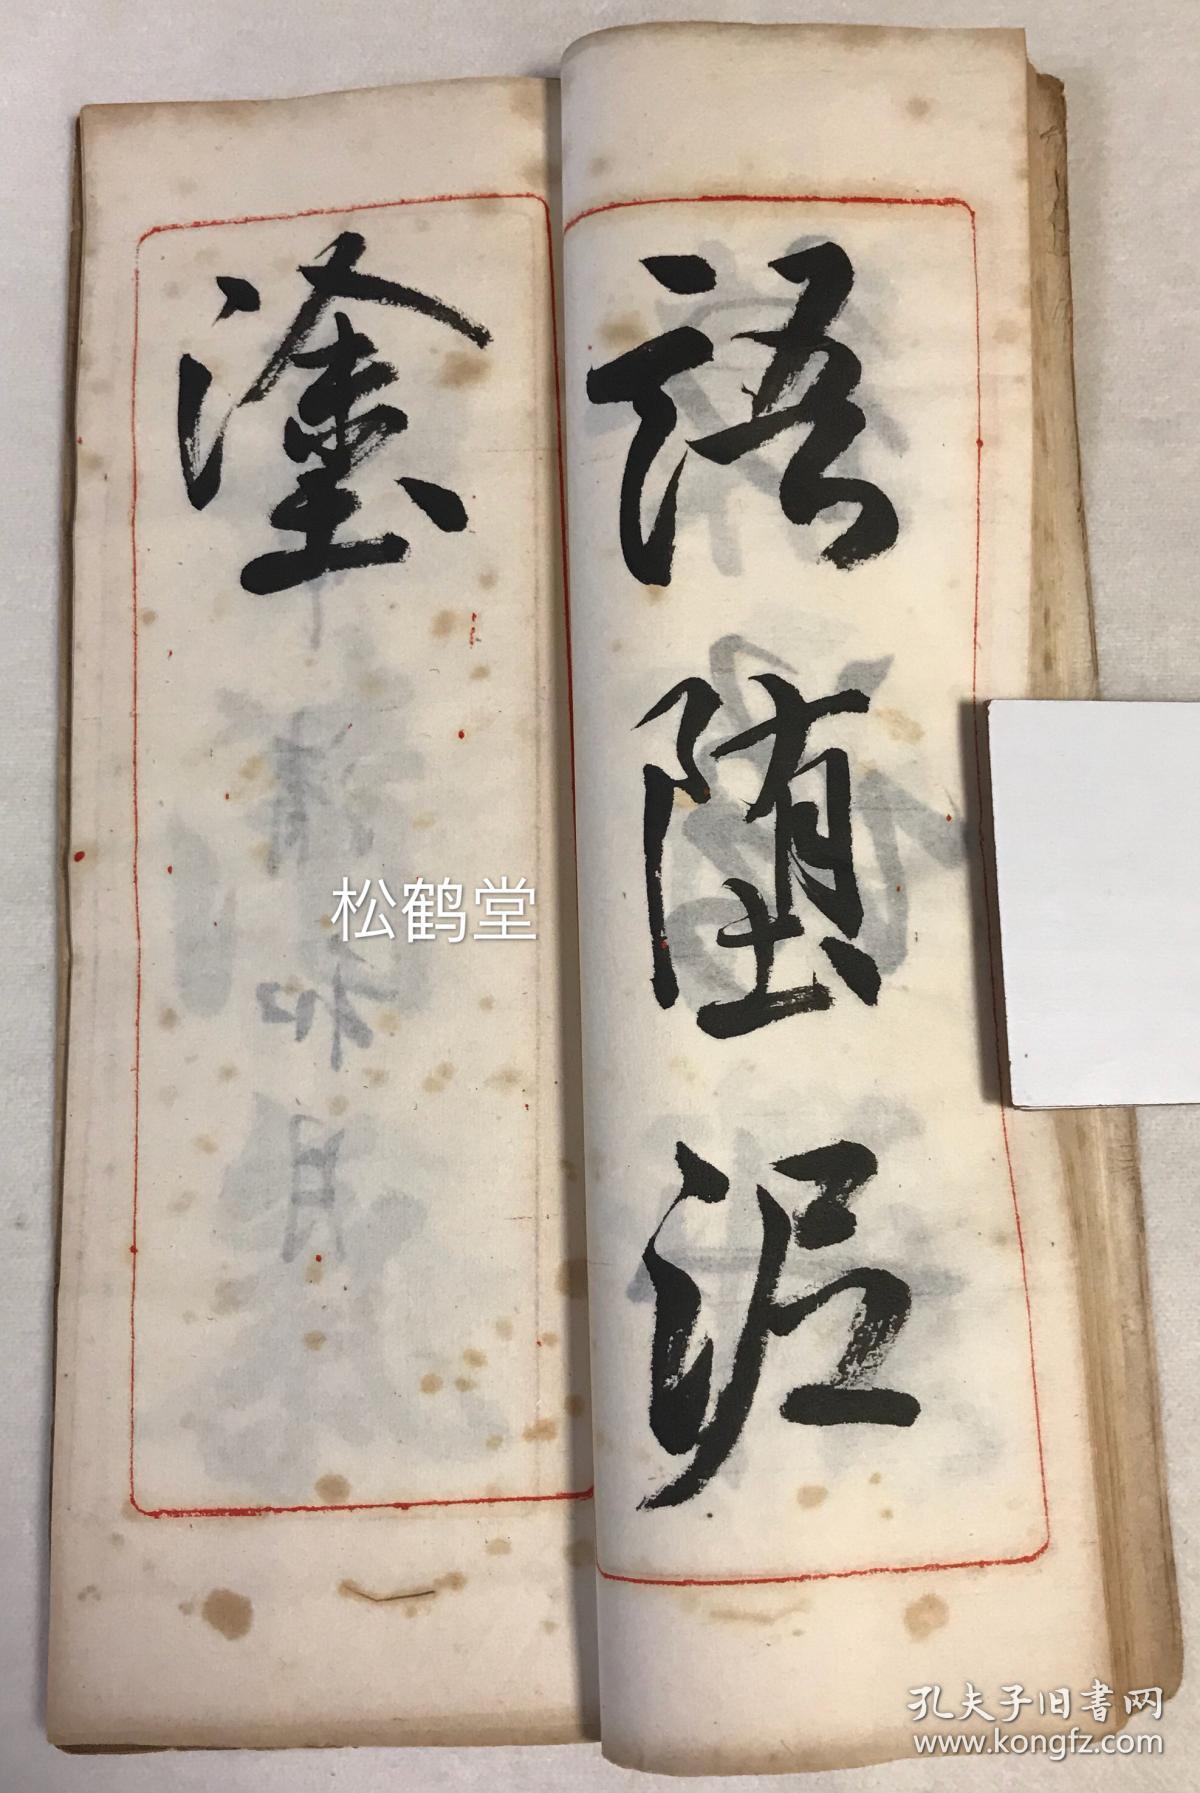 語堕泥
塗
清和月
松鹤堂
孔夫子旧書网
www.kongfz.com